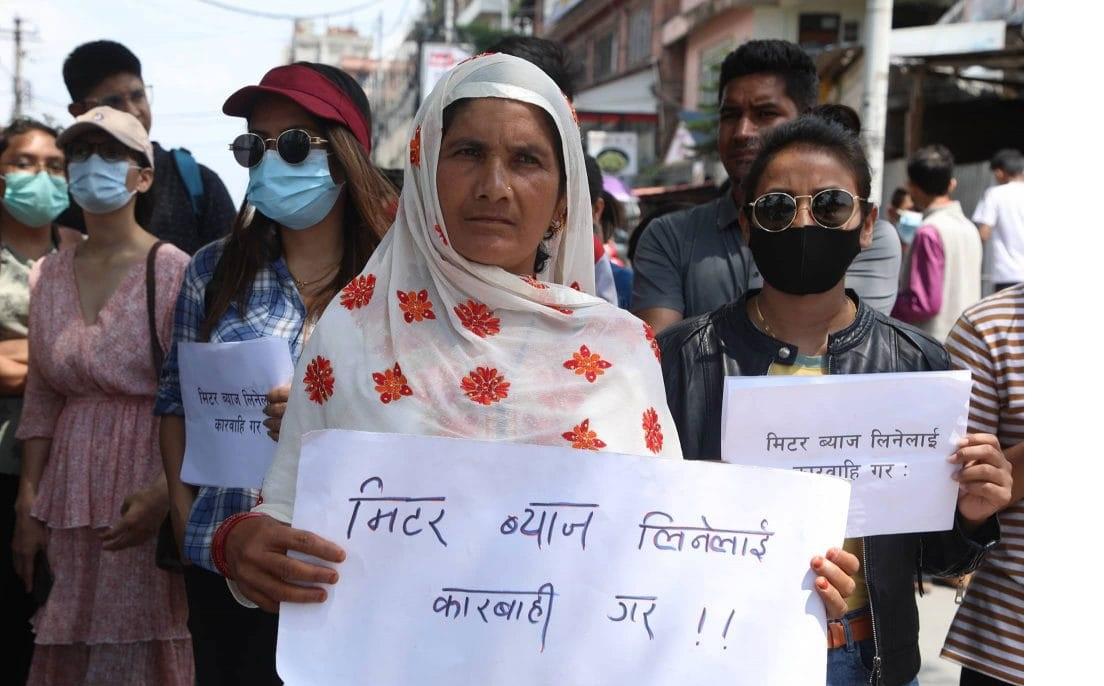 मिटर ब्याज लिनेलाई
कारबाही गर !!
मिटर ब्याज लिनेलाई
कारवाहि गर :
मिटर ब्याज लिनेला
कारवाहि गर